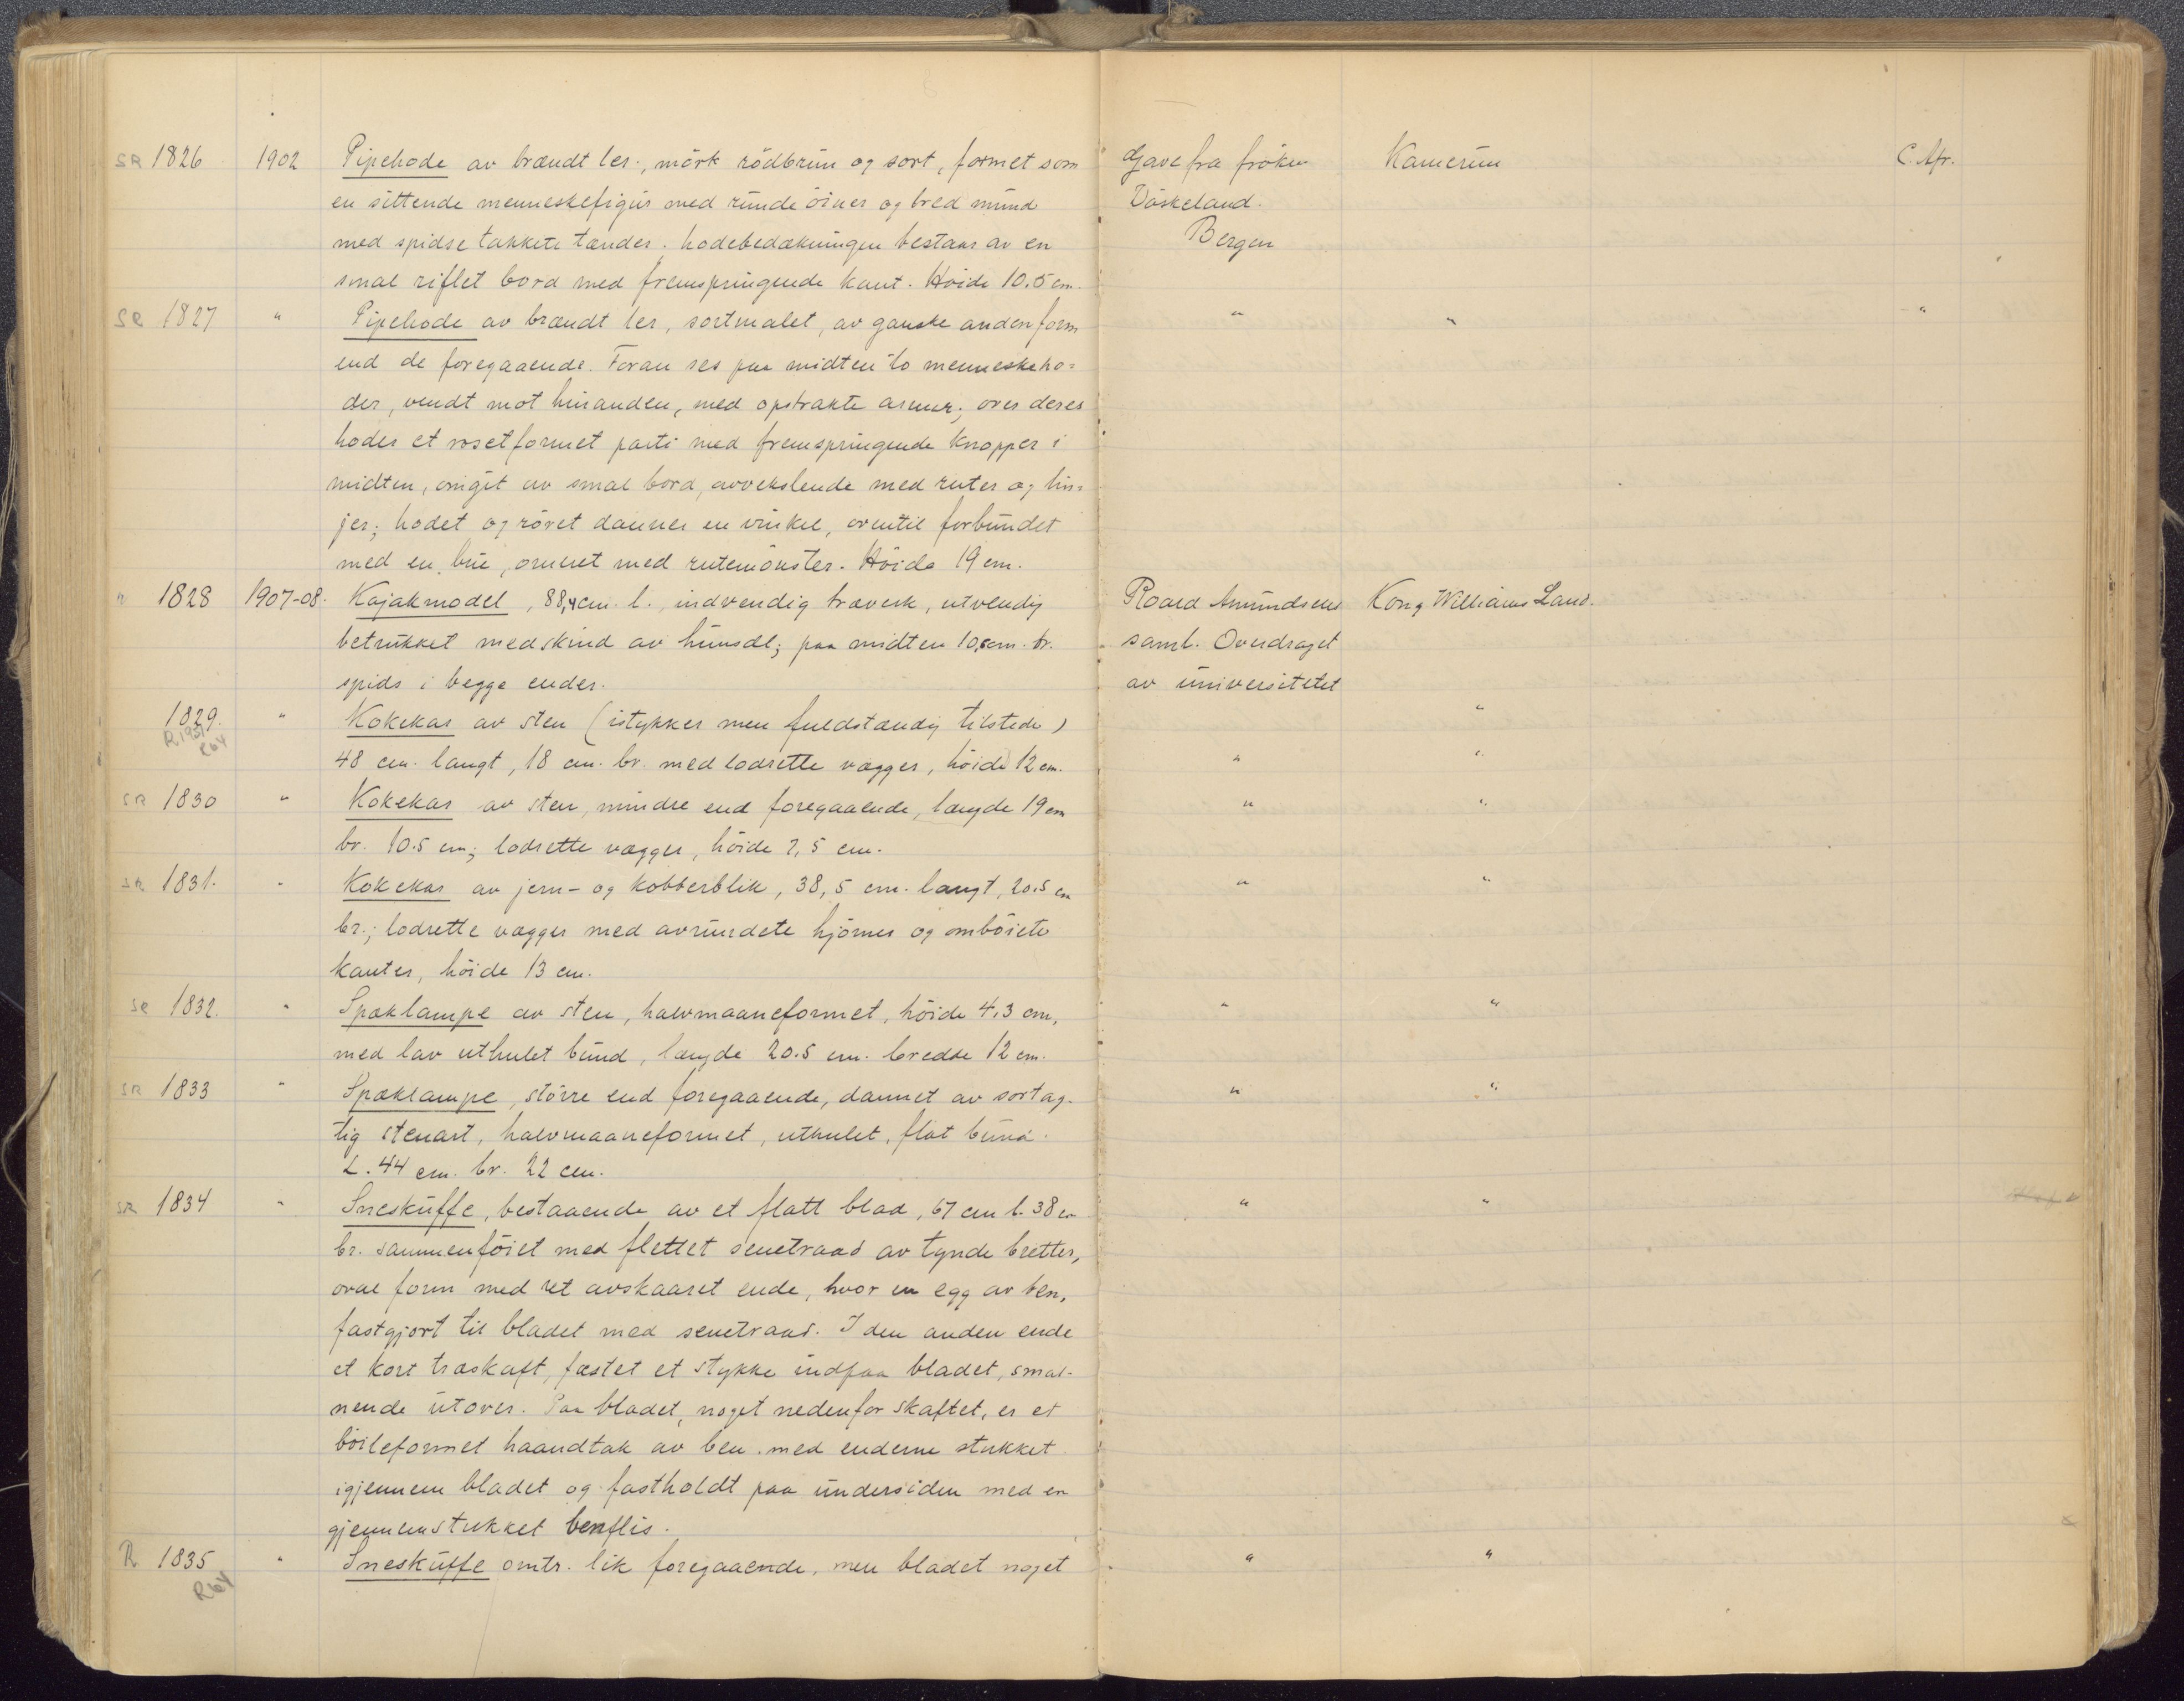 SR 1826 1902 Pipehode av brændt ler, mörk rödbrun og sort, formet som Gave fra fröken Kamerun C. Afr.
en sittende menneskefigur med runde öiner og bred mund Våskeland.
med spidse takkete tænder. Hodebedækningen bestaar av en Bergen
smal riflet bord med fremspringende kant. Höide 10.5 cm.
SR 1827 " Pipehode av brændt ler, sortmalet, av ganske anden form " " "
end de foregaaende. Foran ses paa midten to menneskeho=
der, vendt mot hinanden, med opstrakte armer; over deres
hoder et rosetformet parti med fremspringende knopper i
midten, omgit av smal bord, avvekslende med ruter og lin=
jer; hodet og röret danner en vinkel, oventil forbundet
med en bue, ornert med rutemönster. Höide 19 cm.
" 1828 1907-08. Kajakmodel, 88,4 cm. l., indvendig træverk, utvendig Roald Amundsens Kong Williams Land.
betrukket med skind av hunsæl; paa midten 10,5 cm. br. saml. Overdraget
spids i begge ender. av universitetet
1829. " Kokekar av sten (istykker men fuldstændig tilstede) "
R 1931
R64
48 cm. langt, 18 cm. br. med lodrette vægger, höide 12 cm. " "
SR 1830 " Kokekar av sten, mindre end foregaaende, længde 19 cm " "
br. 10.5 cm; lodrette vægger, höide 7,5 cm.
SR 1831. " Kokekar av jern- og kobberblik, 38,5 cm. langt, 20.5 cm " "
br.; lodrette vægger med avrundete hjörner og omböiete
kanter, höide 13 cm.
SR 1832. " Spæklampe av sten, halvmaaneformet, höide 4,3 cm, " "
med lav uthulet bund, længde 20.5 cm. bredde 12 cm.
SR 1833 " Spæklampe, större end foregaaende, dannet av sortag- " "
tig stenart, halvmaaneformet, uthulet, flat bund.
L. 44 cm. br. 22 cm.
SR 1834 " Sneskuffe, bestaaende av et flatt blad, 67 cm l. 38 cm " "
br. sammenföiet med flettet senetraad av tynde bretter,
oval form med ret avskaaret ende, hvor en egg av ben,
fastgjort til bladet med senetraad. I den anden ende
et kort træskaft, fæstet et stykke indpaa bladet, smal-
nende utover. Paa bladet, noget nedenfor skaftet, er et
böileformet haandtak av ben med enderne stukket
igjennem bladet og fastholdt paa undersiden med en
gjennemstukket benflis.
R 1835 " Sneskuffe omtr. lik foregaaende, men bladet noget " "
R64